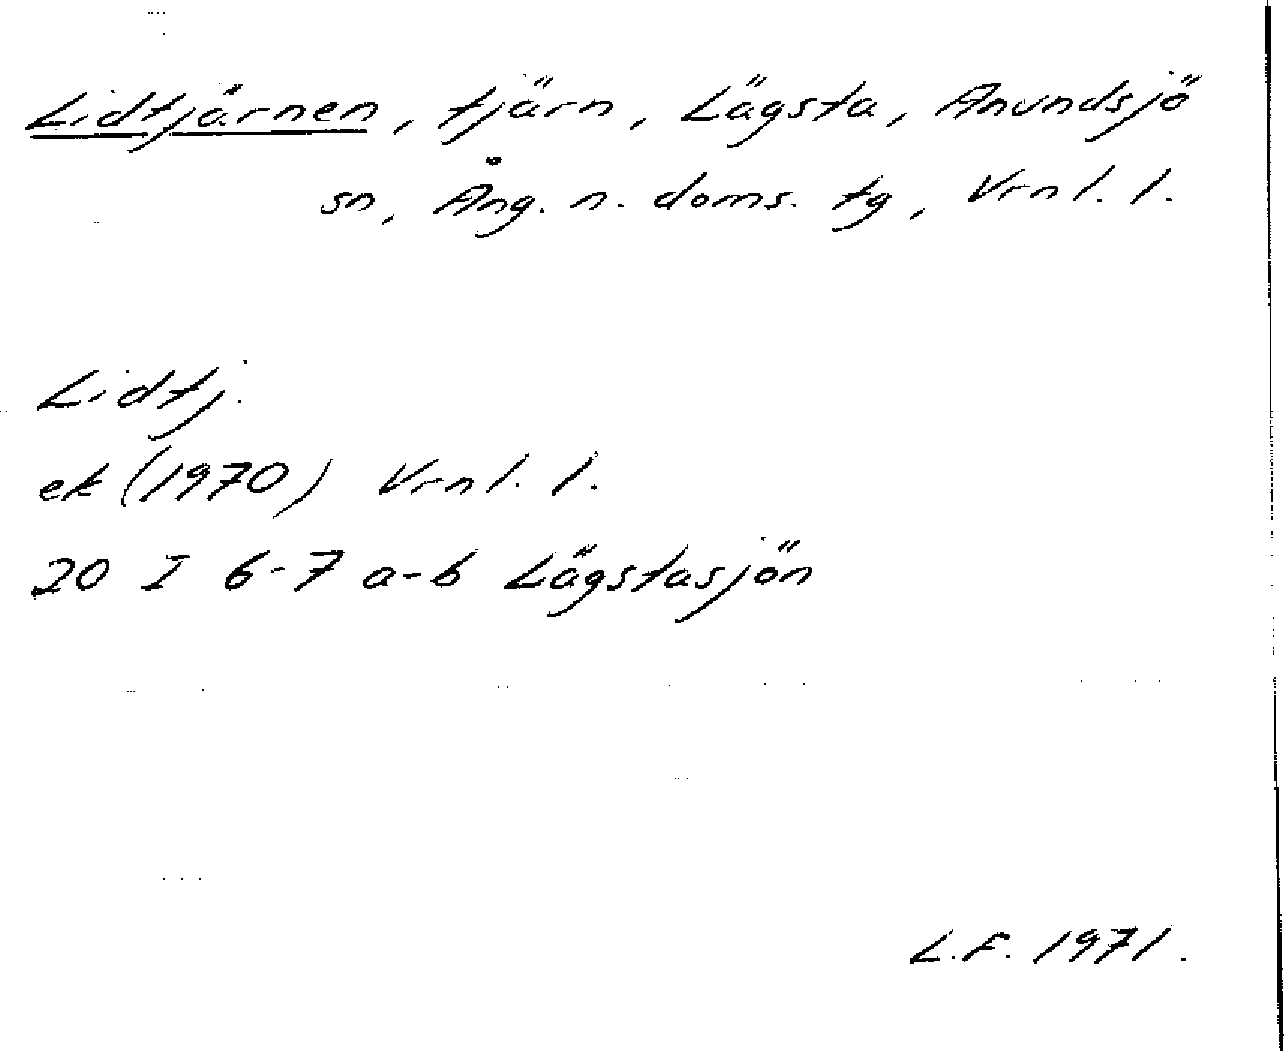 Lidtjärnen, tjärn, Lägsta, Anundsjö
sn, Ång. n. doms. tg, Vrnl. l.
Lidtj.
ek (1970) Vrnl. l.
20 I 6-7 a-b Lägstasjön
L.F. 1971.